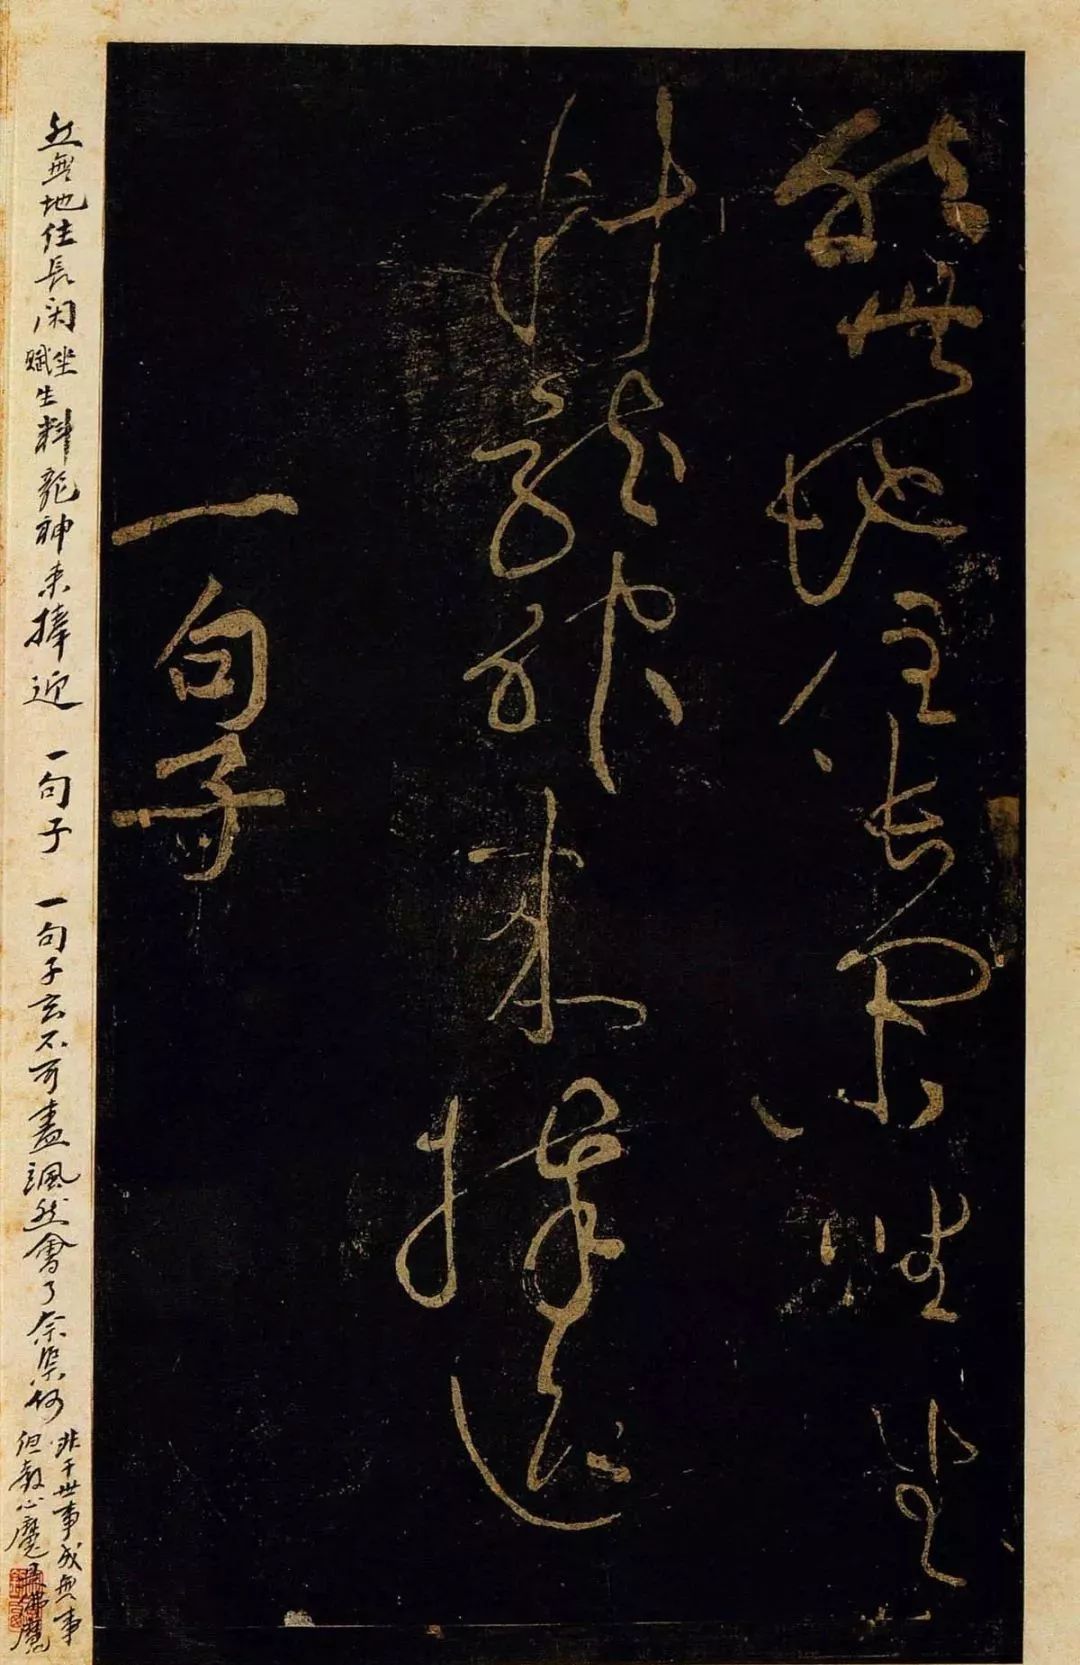 無地住長閑坐
料龍神來捧迎
一句子
無地住長閑坐生料龍神來捧迎 一句子 一句子玄不可盡諷然會了奈渠何
非干世事成無事
但教心魔是佛魔